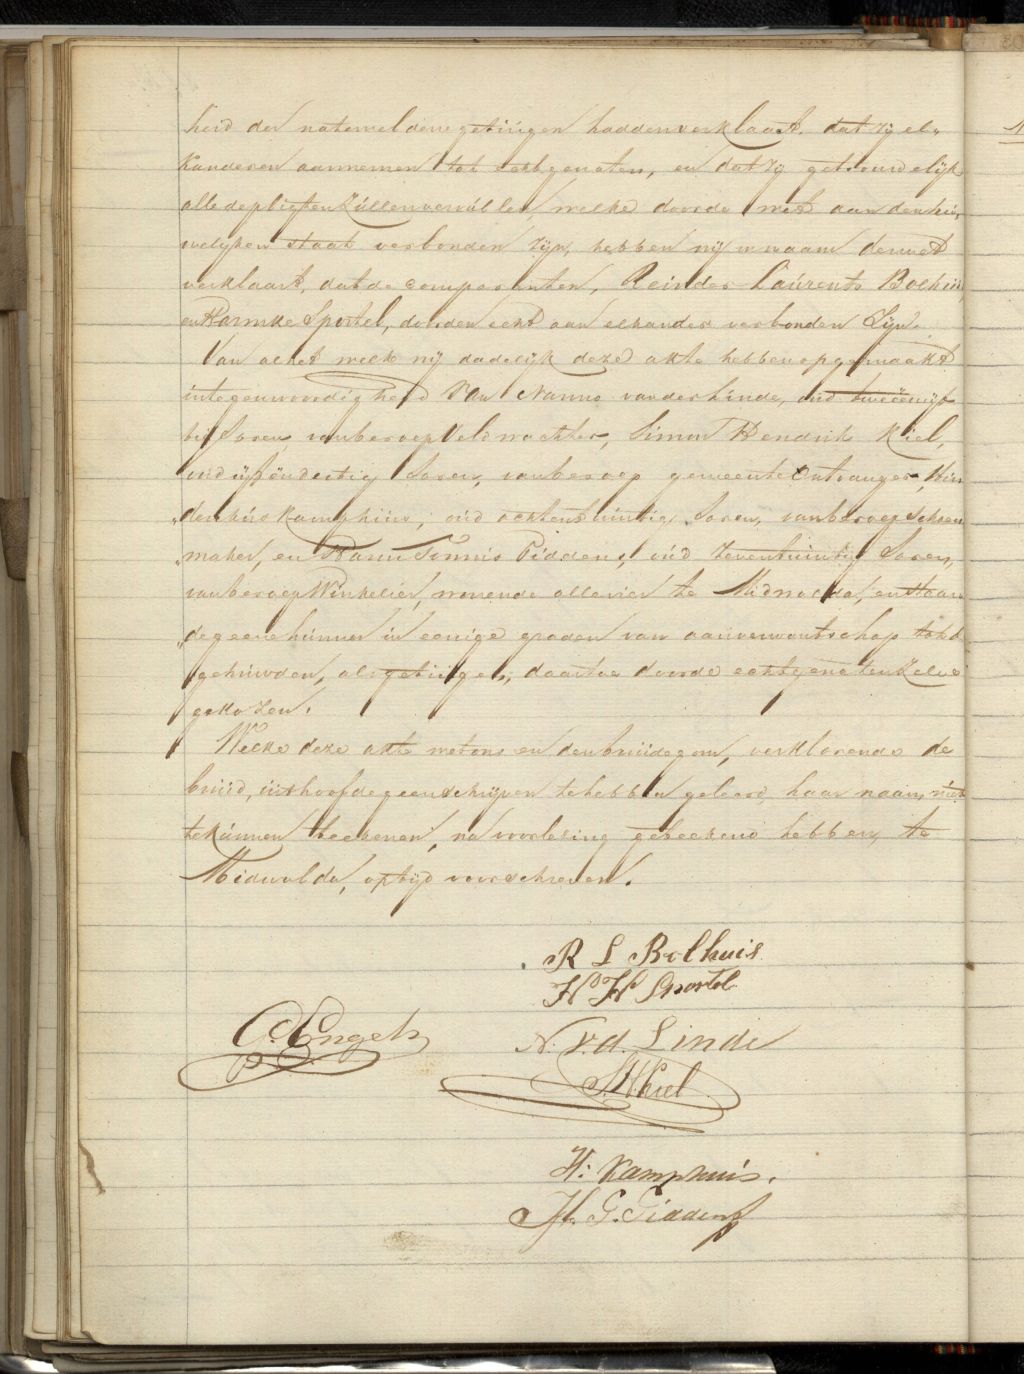 heid der natemeldene getuigen hadden verklaart, dat zij el„
kanderen aannemen tot echtgenoten, en dat zij getrouwelijk
alle de pligten zullen vervullen, welke door de wet aan den hu„
welyken staat verbonden zijn, hebben wij in naam der wet
verklaart, dat de comparenten, Reinder Laurents Bolhuis,
en Harmke Sportel, door den echt aan elkander verbonden Zijn.
Van al het welk wij dadelijk deze akte hebben opgemaakt
in tegenwoordigheid Van Nanno van der Linde, oud tweeënvijf
tig Jaren, van beroep Veldwachter, Simon Hendrik Kiel,
oud vijfendertig Jaren, van beroep gemeente Ontvanger, Hin
„derikus Kamphuis, oud achtentwintig Jaren, van beroep Schoen
„maker, en Harm Tiddens, oud zevентwintig Jaren,
van beroep Winkelier, wonende alle vier te Midwolda, en staan
„de geene hunner in eenige graden van aanverwantschap tot de
gehuwden, als getuigen, daartoe door de echtgenoten Zelve
gekozen.
Welke deze akte met ons en den bruidegom, verklarende de
bruid, uit hoofde geen schrijven te hebben geleerd, haar naam niet
te kunnen teekenen, na voorlezing geteekend hebben, te
Midwolda, op tijd voorschreven.
R L Bolhuis
H H Sportel
C. Engels
N. v. d. Linde
S H Kiel
H: Kamphuis.
H. G. Tiddens